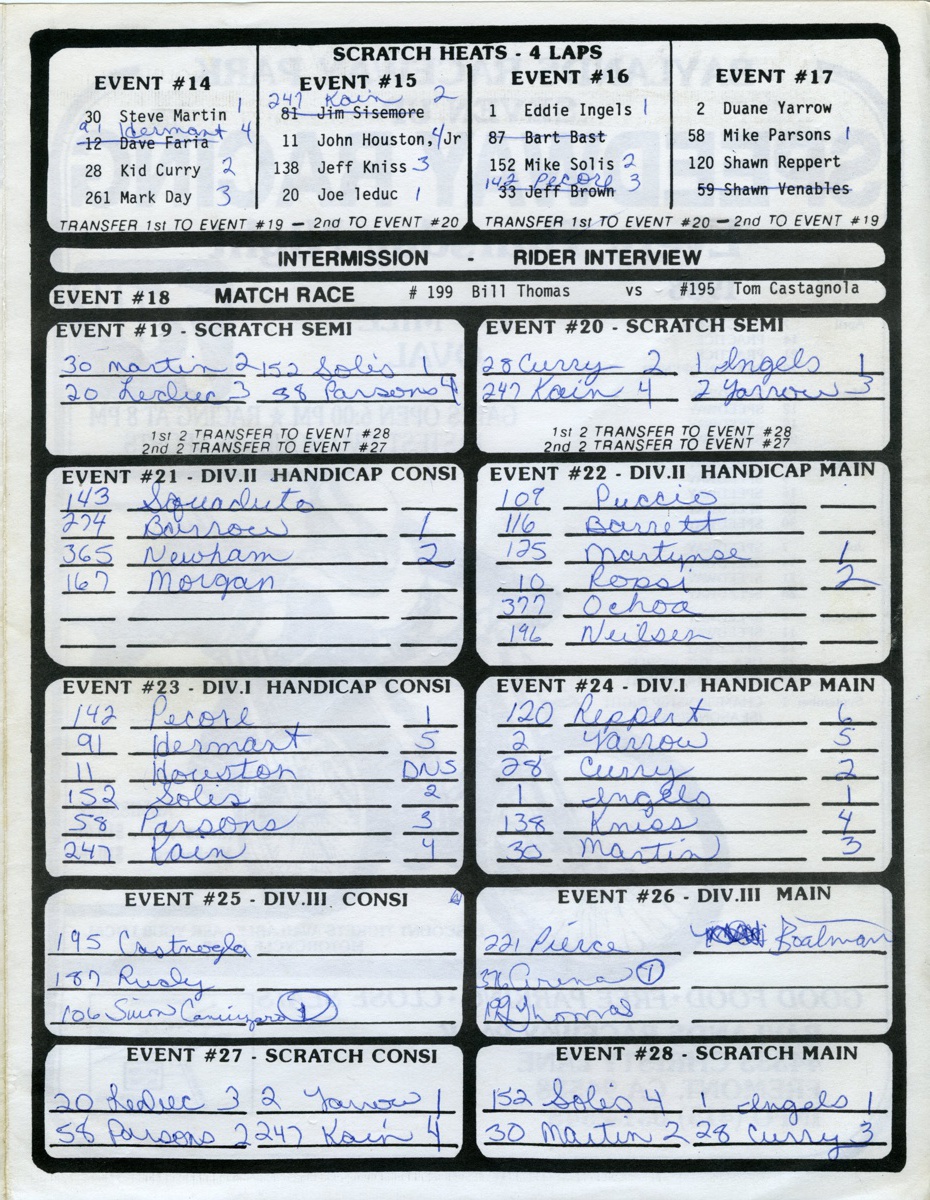 SCRATCH HEATS - 4 LAPS
EVENT #14
30 Steve Martin 1
91 Hermant 4
12 Dave Faria
28 Kid Curry 2
261 Mark Day 3
EVENT #15
247 Kain 2
81 Jim Sisemore
11 John Houston, Jr 4
138 Jeff Kniss 3
20 Joe leduc 1
TRANSFER 1st TO EVENT #19 — 2nd TO EVENT #20
EVENT #16
1 Eddie Ingels 1
87 Bart Bast
152 Mike Solis 2
142 Pecore 3
33 Jeff Brown
EVENT #17
2 Duane Yarrow
58 Mike Parsons 1
120 Shawn Reppert
59 Shawn Venables
TRANSFER 1st TO EVENT #20 — 2nd TO EVENT #19
INTERMISSION - RIDER INTERVIEW
EVENT #18 MATCH RACE # 199 Bill Thomas vs #195 Tom Castagnola
EVENT #19 - SCRATCH SEMI
30 Martin 2 152 Solis 1
20 Leduc 3 58 Parsons 4
1st 2 TRANSFER TO EVENT #28
2nd 2 TRANSFER TO EVENT #27
EVENT #20 - SCRATCH SEMI
28 Curry 2 1 Ingels 1
247 Kain 4 2 Yarrow 3
1st 2 TRANSFER TO EVENT #28
2nd 2 TRANSFER TO EVENT #27
EVENT #21 - DIV.II HANDICAP CONSI
143 Squaduto
274 Burrow 1
365 Newham 2
167 Morgan
EVENT #22 - DIV.II HANDICAP MAIN
109 Puccio
116 Barrett
125 Martynse 1
10 Rossi 2
377 Ochoa
196 Neilsen
EVENT #23 - DIV.I HANDICAP CONSI
142 Pecore 1
91 Hermant 5
11 Houston DNS
152 Solis 2
58 Parsons 3
247 Kain 4
EVENT #24 - DIV.I HANDICAP MAIN
120 Reppert 6
2 Yarrow 5
28 Curry 2
1 Ingels 1
138 Kniss 4
30 Martin 3
EVENT #25 - DIV.III CONSI
195 Castnogla
187 Rusly
106 Simon 1
EVENT #26 - DIV.III MAIN
221 Pierce Boatman
376 Arena 1
199 Thomas
EVENT #27 - SCRATCH CONSI
20 Leduc 3 2 Yarrow 1
58 Parsons 2 247 Kain 4
EVENT #28 - SCRATCH MAIN
152 Solis 4 1 Ingels 1
30 Martin 2 28 Curry 3